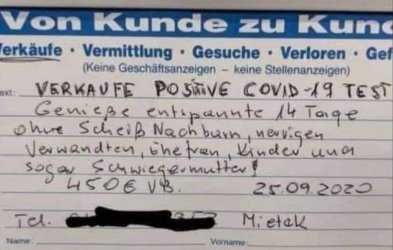 Von Kunde zu Kund
Verkäufe · Vermittlung · Gesuche · Verloren · Gef
(Keine Geschäftsanzeigen - keine Stellenanzeigen)
ext: VERKAUFE POSITIVE COVID-19 TEST
Genieße entspannte 14 Tage
ohne Scheiß Nachbarn, nervigen
Verwandten, Ehefrau, Kinder und
sogar Schwiegermutter!
450€ VB. 25.09.2020
Tel. Mietek
Name: Vorname: